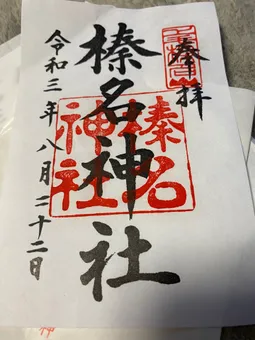 奉拝
榛名神社
榛名
神社
令和三年八月二十二日